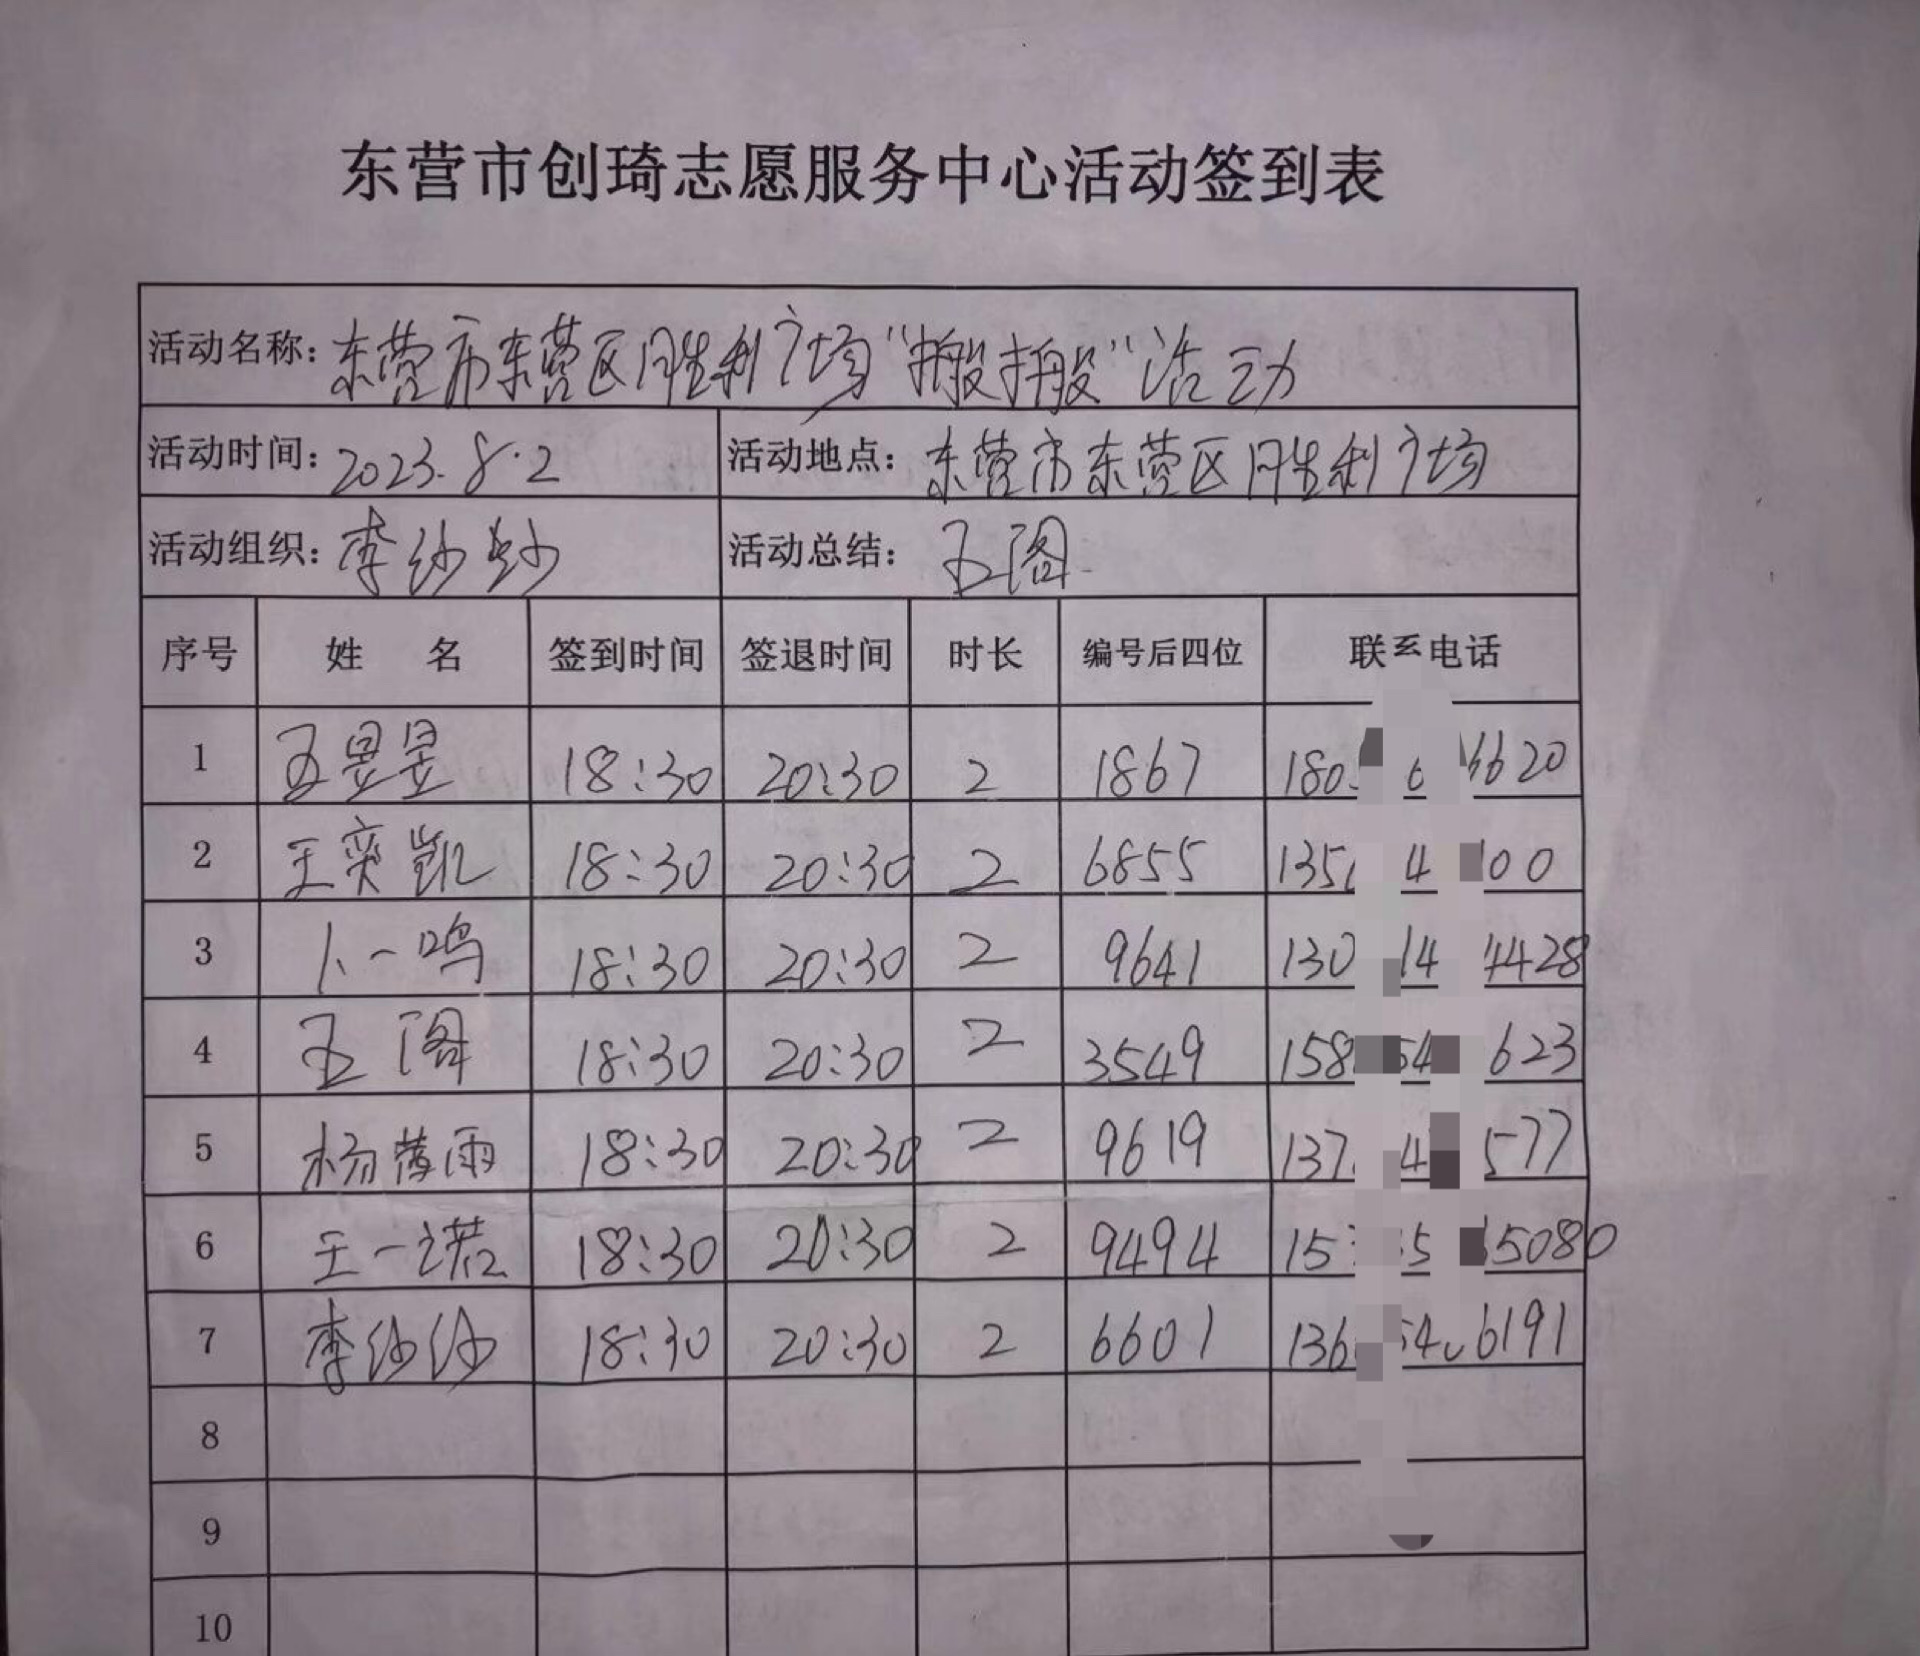 东营市创琦志愿服务中心活动签到表
活动名称：东营市东营区胜利广场“搬搬”活动
活动时间：2023.8.2 活动地点：东营市东营区胜利广场
活动组织：李纱纱 活动总结：王阁
序号 姓 名 签到时间 签退时间 时长 编号后四位 联系电话
1 王昱昱 18:30 20:30 2 1867 180 6 6620
2 王奕凯 18:30 20:30 2 6855 135 4 100
3 卜一鸣 18:30 20:30 2 9641 130 14 4428
4 王阁 18:30 20:30 2 3549 158 54 623
5 杨薄雨 18:30 20:30 2 9619 137 4 577
6 王一诺 18:30 20:30 2 9494 15 5 5080
7 李纱纱 18:30 20:30 2 6601 136 54 6191
8
9
10